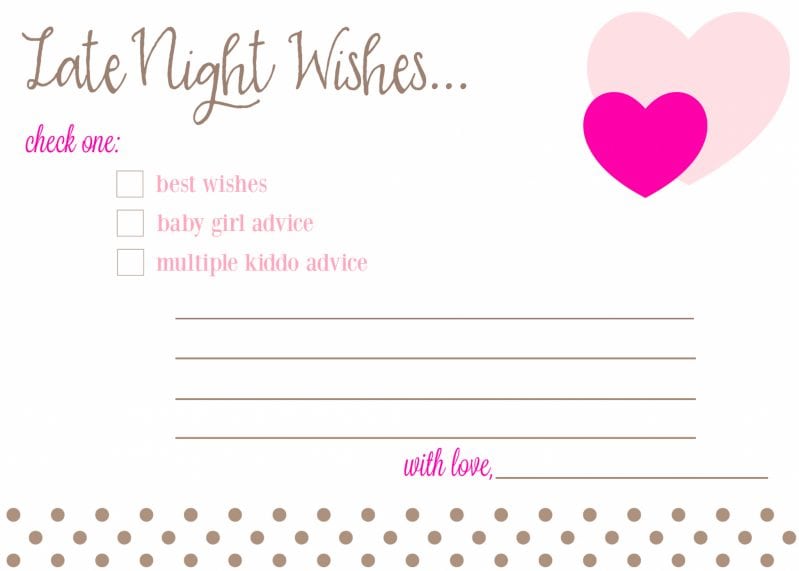 Late Night Wishes...
check one:
best wishes
baby girl advice
multiple kiddo advice
with love,